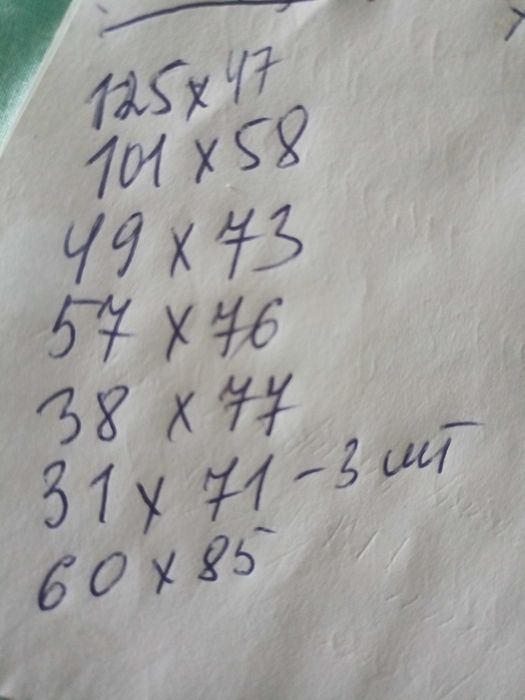 125 x 47
101 x 58
49 x 73
57 x 76
38 x 77
31 x 71 - 3 шт
60 x 85